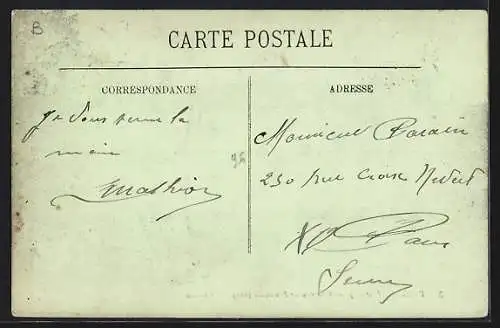 B
CARTE POSTALE
CORRESPONDANCE
ADRESSE
Je vous serre la
main
Mathion
Monsieur Parain
230 rue Croix Nivert
XV Paris
Seine